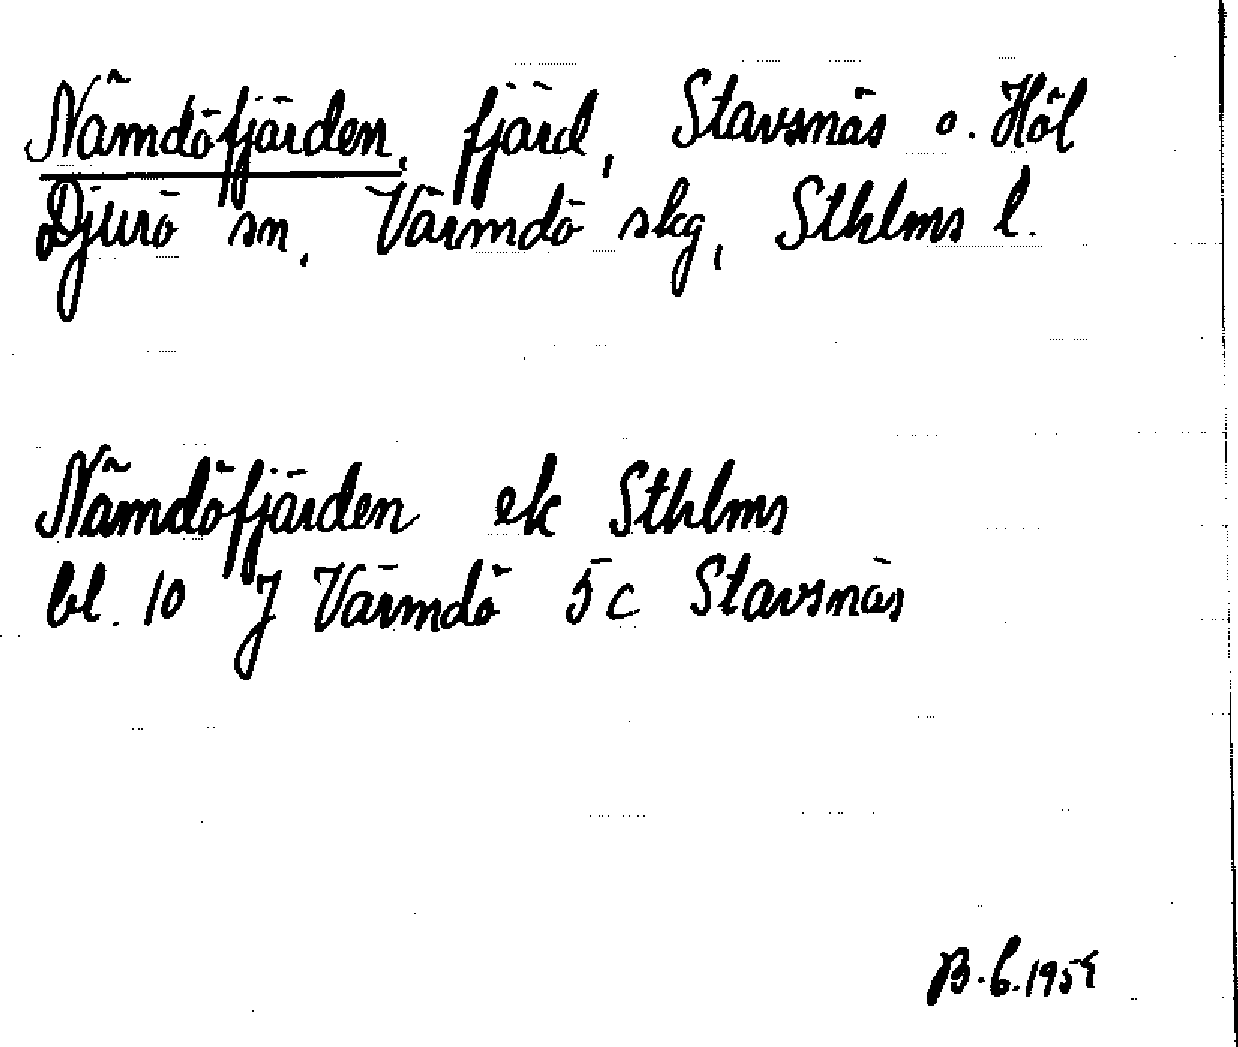 Nämdöfjärden, fjärd, Stavsnäs o. Höl
Djurö sn, Värmdö skg, Sthlms l.
Nämdöfjärden ek Sthlms
bl. 10 J Värmdö 5c Stavsnäs